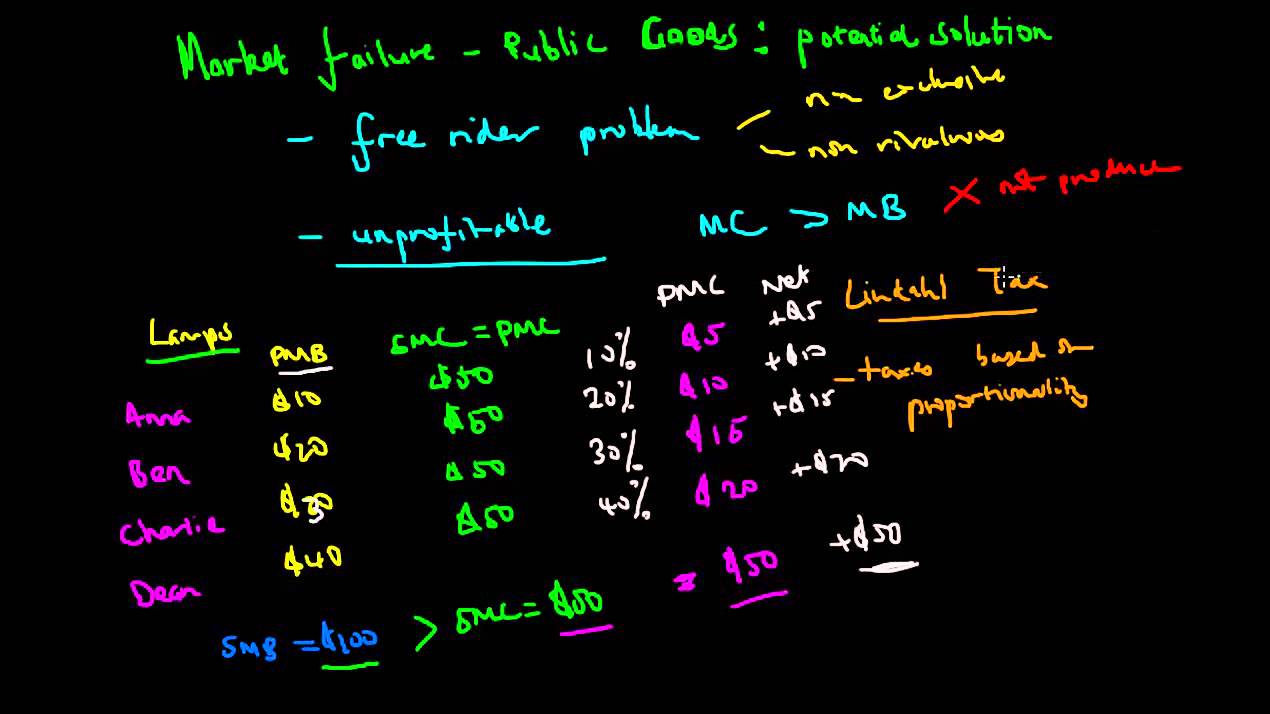 Market failure - Public Goods: potential solution
- free rider problem
non exclusive
non rivalrous
- unprofitable
MC > MB X not produce
PMC Net
Lindahl Tax
Lamps
PMB
SMC = PMC
10% $5 +$5
Anna $10 $50
20% $10 +$10
- taxes based on
proportionality
Ben $20 $50
30% $15 +$15
Charlie $30 $50
40% $20 +$20
Dean $40 $50
SMB = $100 > SMC = $50 = $50 +$50